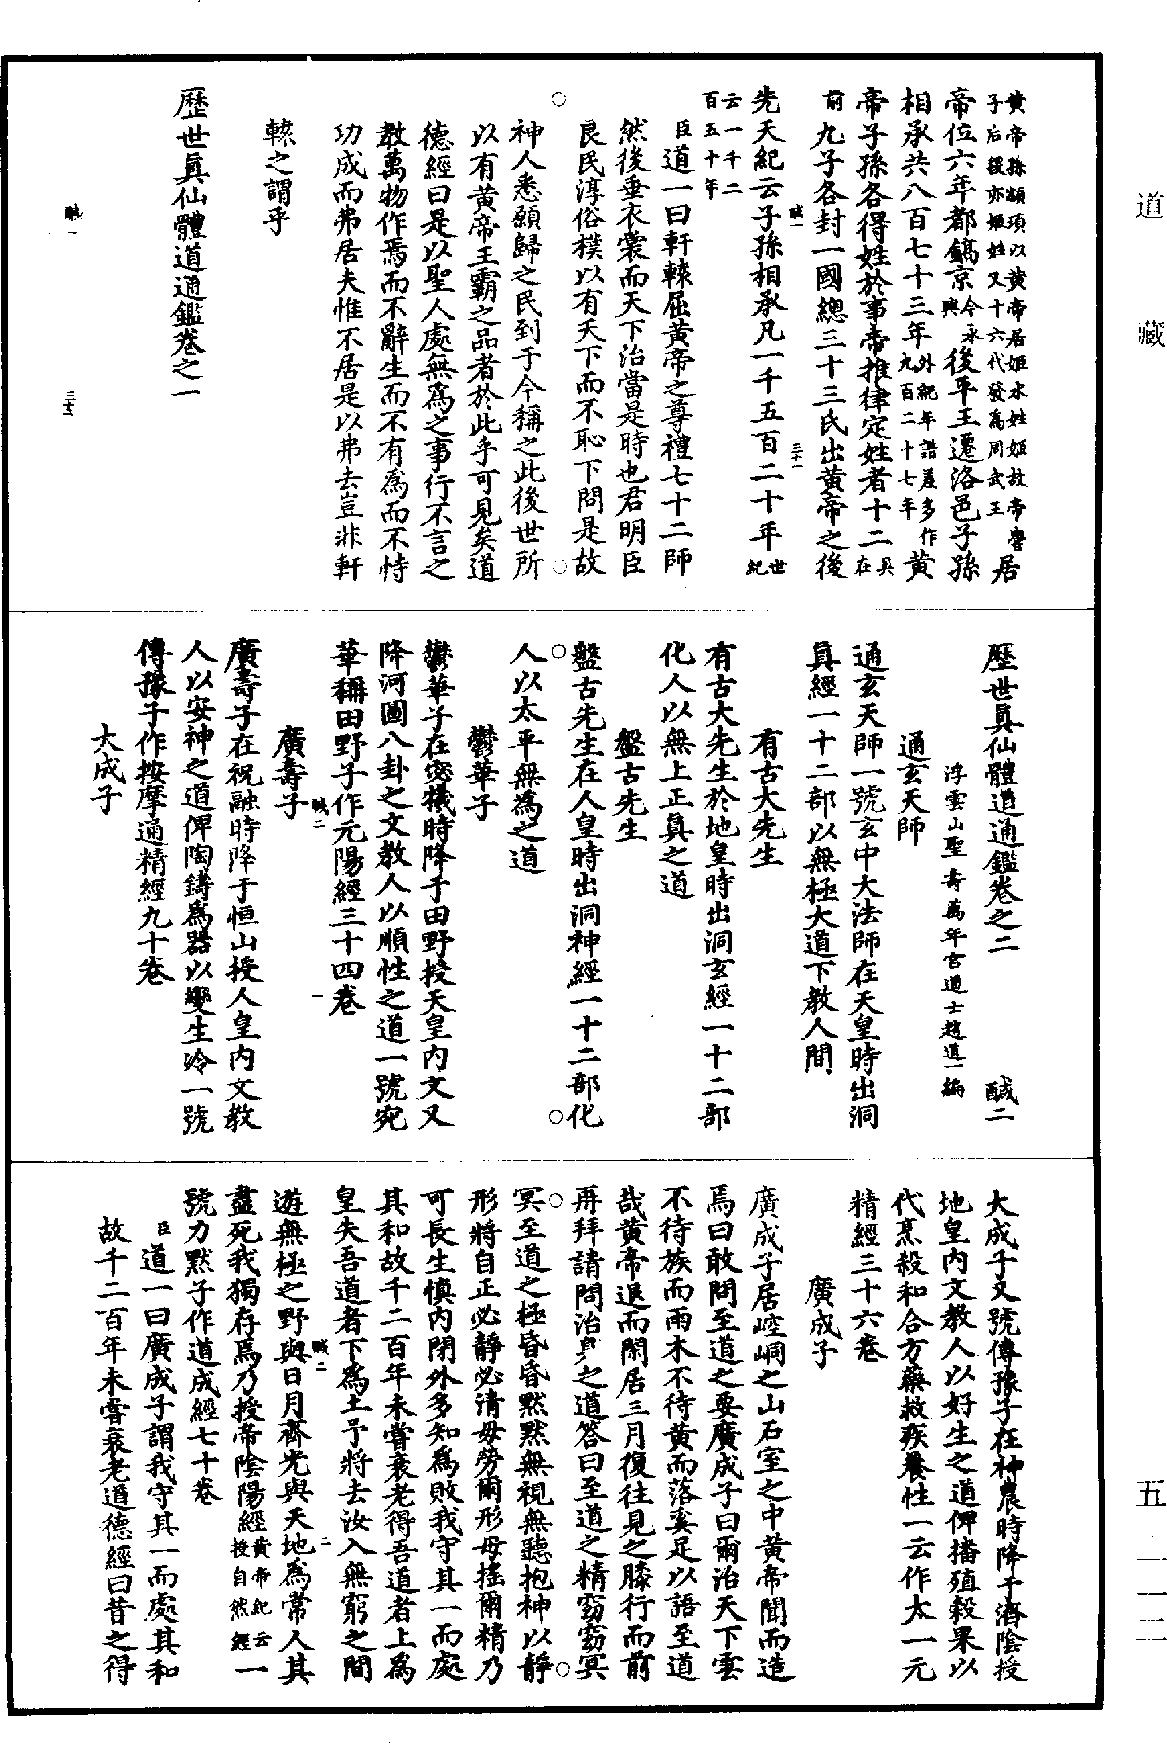 道藏
五—一一二
黃帝孫顓頊以黃帝居姬水姓姬故帝嚳
子后稷亦姬姓又十六代發爲周武王
居
帝位六年都鎬京今永興後平王遷洛邑子孫
相承共八百七十三年外紀年譜差多作九百二十七年黃
帝子孫各得姓於事帝推律定姓者十二具在
前九子各封一國總三十三氏出黃帝之後
先天紀云子孫相承凡一千五百二十年世紀
云一千二百五十年
臣道一曰軒轅屈黃帝之尊禮七十二師
然後垂衣裳而天下治當是時也君明臣
良民淳俗樸以有天下而不恥下問是故
神人悉願歸之民到于今稱之此後世所
以有黃帝王霸之品者於此乎可見矣道
德經曰是以聖人處無爲之事行不言之
教萬物作焉而不辭生而不有爲而不恃
功成而弗居夫惟不居是以弗去豈非軒
轅之謂乎
歷世真仙體道通鑑卷之一
歷世真仙體道通鑑卷之二 醎二
浮雲山聖壽萬年宮道士趙道一編
通玄天師
通玄天師一號玄中大法師在天皇時出洞
真經一十二部以無極大道下教人間
有古大先生
有古大先生於地皇時出洞玄經一十二部
化人以無上正真之道
盤古先生
盤古先生在人皇時出洞神經一十二部化
人以太平無爲之道
鬱華子
鬱華子在宓犧時降于田野授天皇內文又
降河圖八卦之文教人以順性之道一號宛
華稱田野子作元陽經三十四卷
廣壽子
廣壽子在祝融時降于恒山授人皇內文教
人以安神之道俾陶鑄爲器以變生冷一號
傳豫子作按摩通精經九十卷
大成子
大成子又號傳豫子在神農時降于濟陰授
地皇內文教人以好生之道俾播殖穀果以
代烹殺和合方藥救疾養性一云作太一元
精經三十六卷
廣成子
廣成子居崆峒之山石室之中黃帝聞而造
焉曰敢問至道之要廣成子曰爾治天下雲
不待族而雨木不待黃而落奚足以語至道
哉黃帝退而閑居三月復往見之膝行而前
再拜請問治身之道答曰至道之精窈窈冥
冥至道之極昏昏默默無視無聽抱神以靜
形將自正必靜必清毋勞爾形毋搖爾精乃
可長生慎內閉外多知爲敗我守其一而處
其和故千二百年未嘗衰老得吾道者上爲
皇失吾道者下爲土予將去汝入無窮之間
遊無極之野與日月齊光與天地爲常人其
盡死我獨存焉乃授帝陰陽經黃帝紀云授自然經一
號力默子作道成經七十卷
臣道一曰廣成子謂我守其一而處其和
故千二百年未嘗衰老道德經曰昔之得